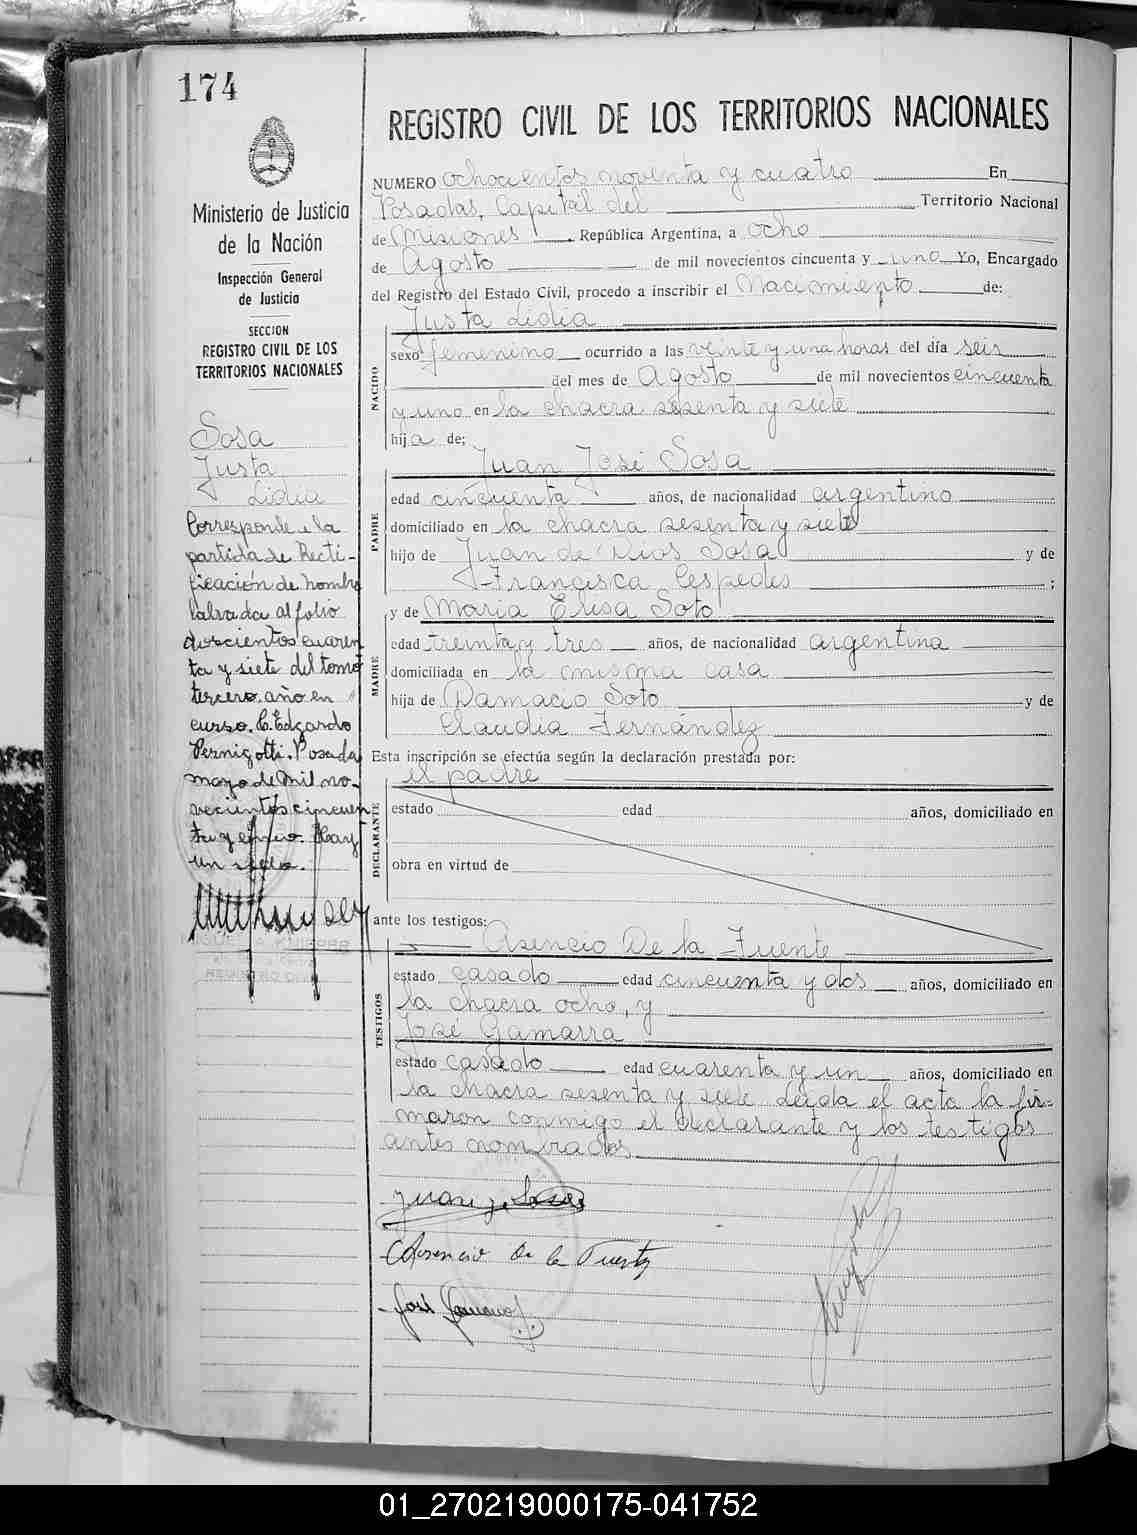 174
Ministerio de Justicia
de la Nación
Inspección General
de Justicia
SECCION
REGISTRO CIVIL DE LOS
TERRITORIOS NACIONALES
Sosa
Justa
Lidia
Corresponde a la
partida de Recti-
ficación de nombre
labrada al folio
doscientos cuaren
ta y siete del tomo
tercero, año en
curso. C. Edgardo
Pernigotti. Posadas
mayo de mil no-
vecientos cincuen
ta y cinco. Hay
un sello.
MIGUEL A. KNIPPER
REGISTRO CIVIL
REGISTRO CIVIL DE LOS TERRITORIOS NACIONALES
NUMERO ochocientos noventa y cuatro En
Posadas, Capital del Territorio Nacional
de Misiones, República Argentina, a ocho
de Agosto de mil novecientos cincuenta y uno Yo, Encargado
del Registro del Estado Civil, procedo a inscribir el Nacimiento de:
Justa Lidia
NACIDO
sexo femenino ocurrido a las veinte y una horas del día seis
del mes de Agosto de mil novecientos cincuenta
y uno en la chacra sesenta y siete
hija de;
Juan José Sosa
PADRE
edad cincuenta años, de nacionalidad argentino
domiciliado en la chacra sesenta y siete
hijo de Juan de Dios Sosa y de
Francisca Cespedes ;
y de María Elisa Soto
MADRE
edad treinta y tres años, de nacionalidad argentina
domiciliada en la misma casa
hija de Damacio Soto y de
Claudia Fernández
Esta inscripción se efectúa según la declaración prestada por:
el padre
DECLARANTE
estado edad años, domiciliado en
obra en virtud de
ante los testigos:
Asencio De la Fuente
TESTIGOS
estado casado edad cincuenta y dos años, domiciliado en
la chacra ocho, y
José Gamarra
estado casado edad cuarenta y un años, domiciliado en
la chacra sesenta y siete Leída el acta la fir=
maron conmigo el declarante y los testigos
antes nombrados
Juan J. Sosa
Asencio De la Fuente
José Gamarra
01_270219000175-041752